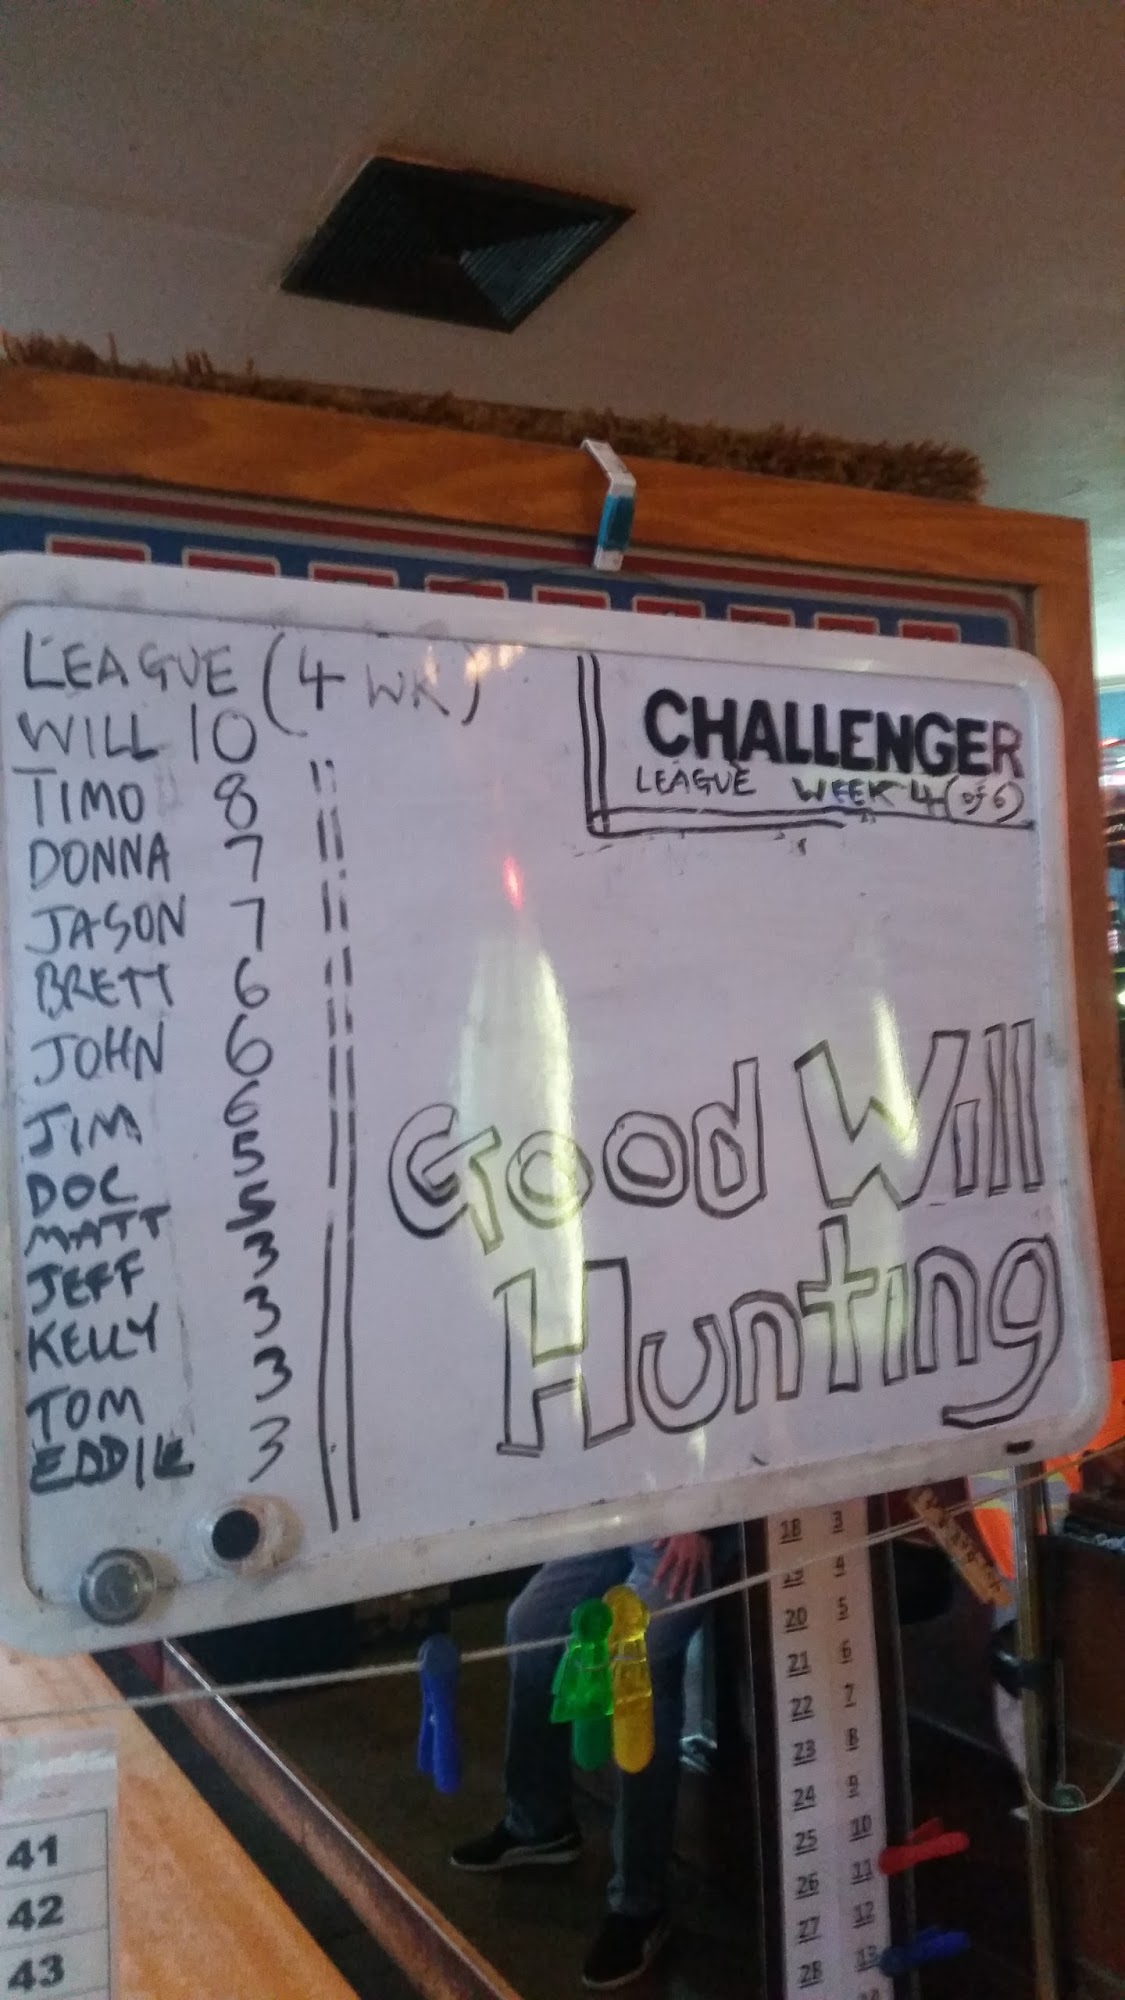 LEAGUE (4 WK)
WILL 10
TIMO 8
DONNA 7
JASON 7
BRETT 6
JOHN 6
JIM 6
DOC 5
MATT 5
JEFF 3
KELLY 3
TOM 3
EDDIE 3
CHALLENGER
LEAGUE WEEK 4 (of 6)
Good Will
Hunting
18 3
19 4
20 5
21 6
22 7
23 8
24 9
25 10
26 11
27 12
28 13
41
42
43